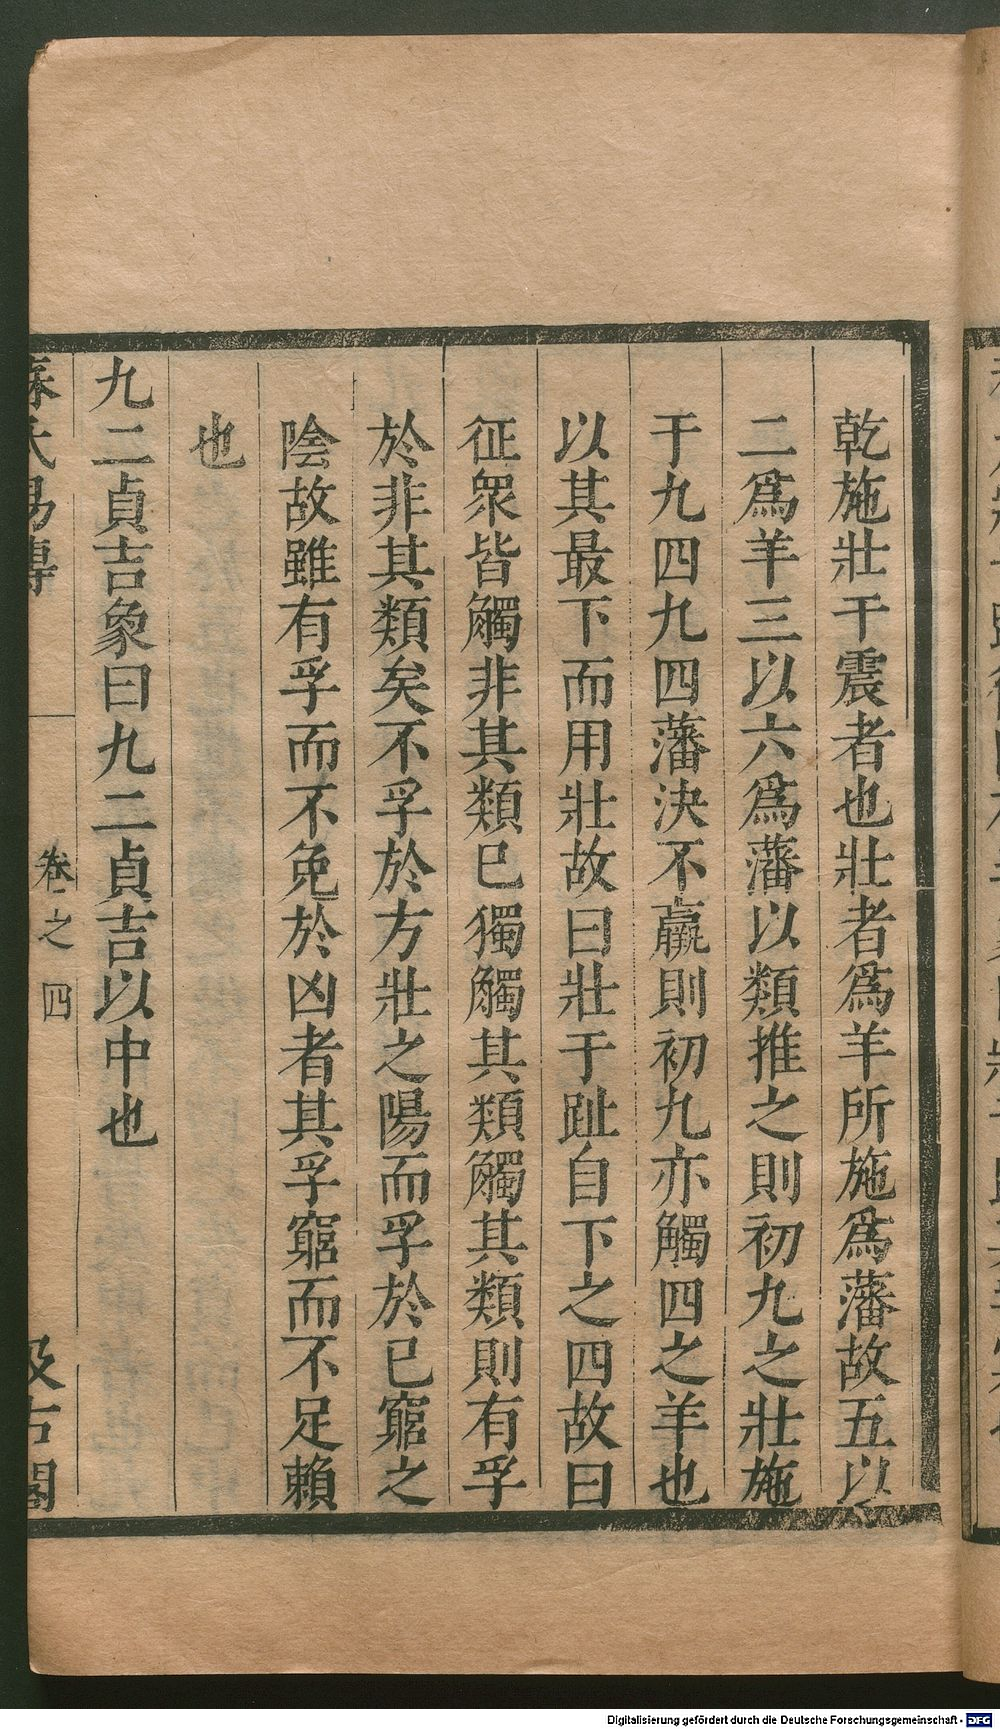 乾施壯干震者也壯者爲羊所施爲藩故五以
二爲羊三以六爲藩以類推之則初九之壯施
于九四九四藩決不羸則初九亦觸四之羊也
以其最下而用壯故曰壯于趾自下之四故曰
征衆皆觸非其類已獨觸其類觸其類則有孚
於非其類矣不孚於方壯之陽而孚於已窮之
陰故雖有孚而不免於凶者其孚窮而不足賴
也
九二貞吉象曰九二貞吉以中也
蘇氏易傳 卷之四 汲古閣
Digitalisierung gefördert durch die Deutsche Forschungsgemeinschaft - DFG